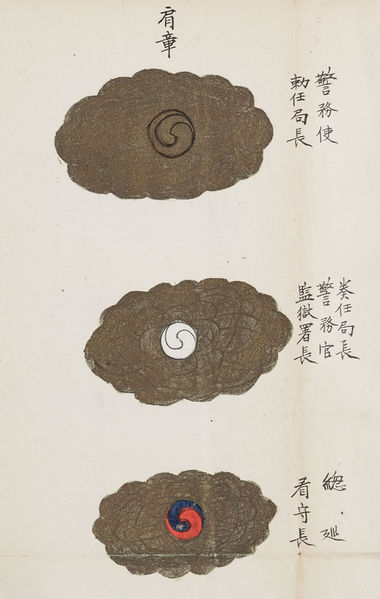 肩章
警務使
勅任局長
奏任局長
警務官
監獄署長
總廵
看守長